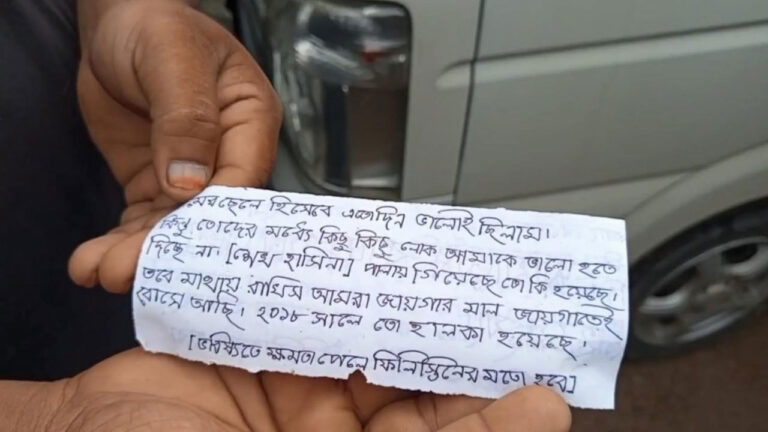 ছেলে হিসেবে এতোদিন ভালোই ছিলাম।
কিন্তু তোদের মধ্যে কিছু কিছু লোক আমাকে ভালো হতে
দিচ্ছে না। [শেখ হাসিনা] পালায় গিয়েছে তো কি হয়েছে।
তবে মাথায় রাখিস আমরা জায়গার মাল জায়গাতেই
বসে আছি। ২০১৮ সালে তো হালকা হয়েছে।
[ভবিষ্যিতে ক্ষমতা পেলে ফিলিস্তিনের মতো হবে]